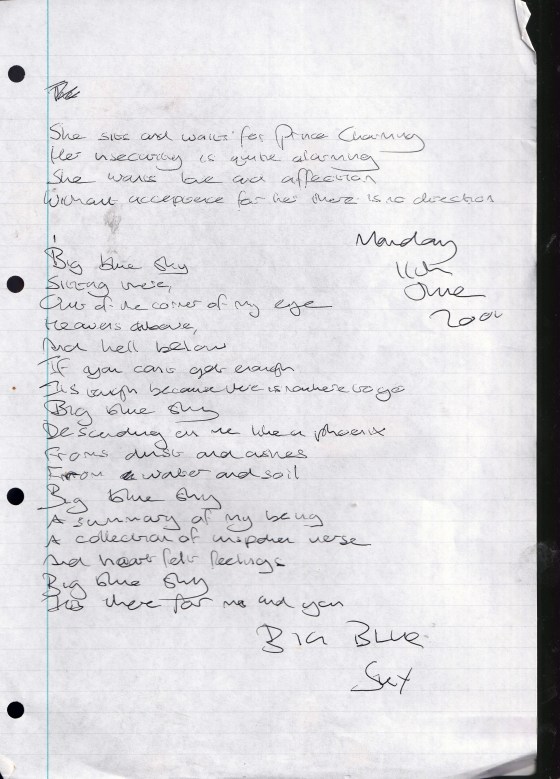 She sits and waits for Prince Charming
Her insecurity is quite alarming
She wants love and affection
Without acceptance for her there is no direction
Monday
11th
June
2001
Big blue sky
Sitting there,
Out of the corner of my eye
Heavens above,
And hell below
If you can't get enough
Its tough because there is nowhere to go
Big blue sky
Descending on me like a phoenix
From dust and ashes
From water and soil
Big blue sky
A summary of my being
A collection of unspoken verse
And heart felt feelings
Big blue sky
Its there for me and you
BIG BLUE
SKY